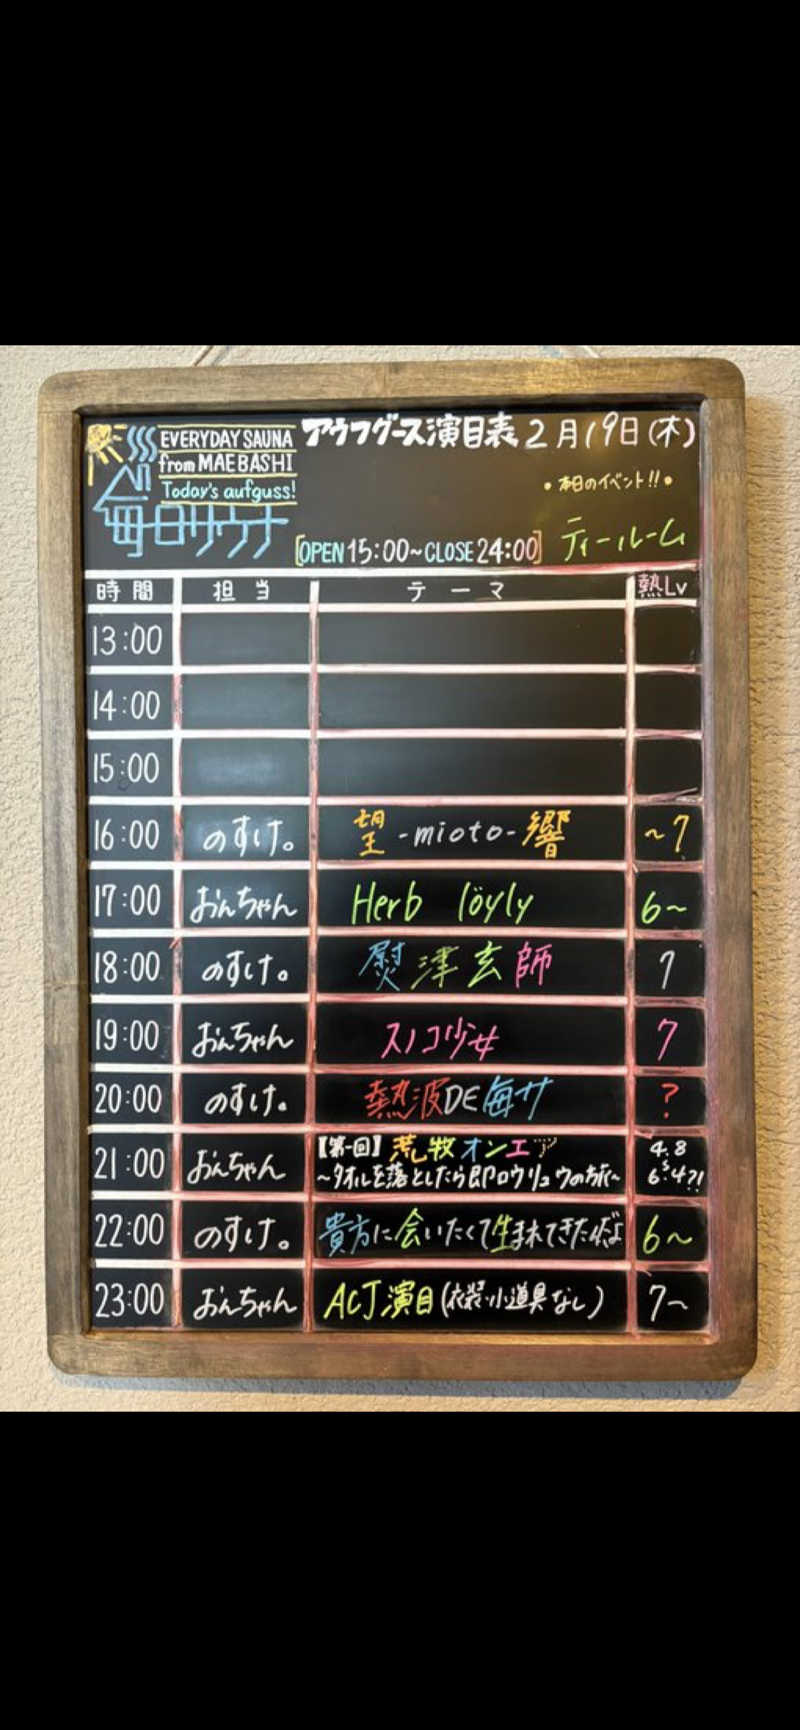 EVERYDAY SAUNA
from MAEBASHI
Today's aufguss!
毎日サウナ
アウフグース演目表 2月19日(木)
•本日のイベント!!•
[OPEN 15:00~CLOSE 24:00] ティールーム
時間 担当 テーマ 熱Lv
13:00
14:00
15:00
16:00 のすけ。 望-mioto-響 ~7
17:00 おんちゃん Herb löyly 6~
18:00 のすけ。 熨津玄師 7
19:00 おんちゃん スノコ少女 7
20:00 のすけ。 熱波DE毎サ ?
21:00 おんちゃん 【第一回】荒牧オンエア 4.8
~タオルを落としたら即ロウリュウの旅~ 6.4?!
22:00 のすけ。 貴方に会いたくて生まれてきたんだよ 6~
23:00 おんちゃん ACJ演目(衣装・小道具なし) 7~